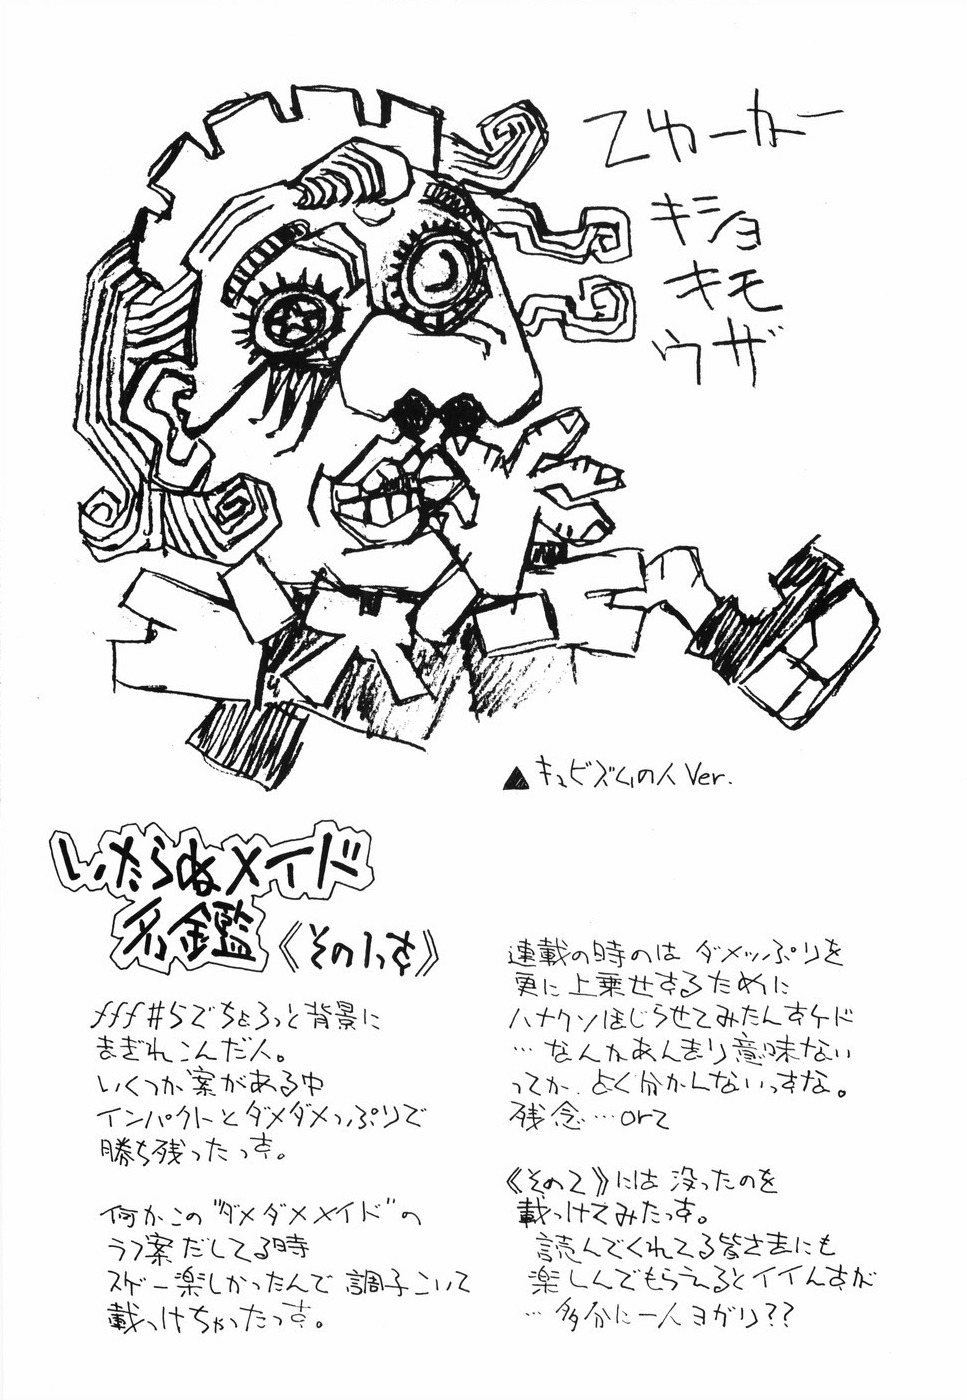 てカーカー
キショ
キモ
ウザ
▲キュビズムの人 Ver.
いたらぬメイド
名鑑
《その1っす》
fff#5でちょろっと背景に
まぎれこんだ人。
いくつか案がある中
インパクトとダメダメっぷりで
勝ち残ったっす。
何かこの“ダメダメメイド”の
ラフ案だしてる時
スゲー楽しかったんで 調子こいて
載っけちゃったっす。
連載の時のは ダメッぷりを
更に上乗せするために
ハナクソほじらせてみたんすケド
…なんかあんまり意味ない
ってか、よく分かんないっすな。
残念…orz
《その2》には 没ったのを
載っけてみたっす。
読んでくれてる皆さまにも
楽しんでもらえるとイイんすが
…多分に一人ヨガリ??